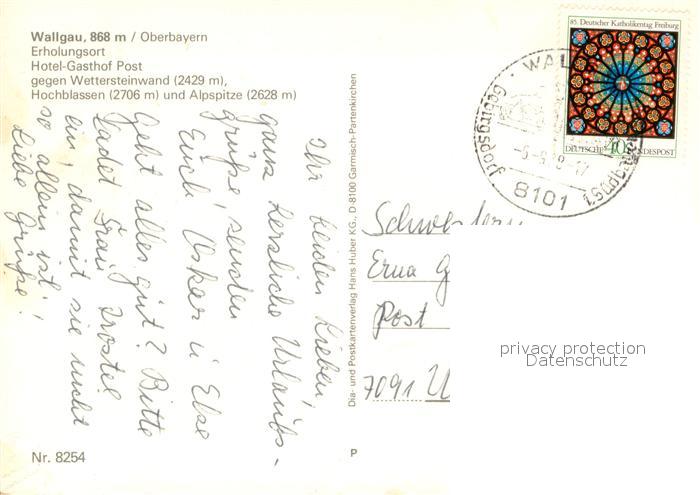 Wallgau, 868 m / Oberbayern
Erholungsort
Hotel-Gasthof Post
gegen Wettersteinwand (2429 m),
Hochblassen (2706 m) und Alpspitze (2628 m)
Ihr beiden Lieben,
ganz herzliche Urlaubs-
grüße senden
Euch Oskar u Else
Geht alles gut? Bitte
ladet Frau Trostel
ein, damit sie nicht
so allein ist!
Liebe Grüße!
Nr. 8254
Dia- und Postkartenverlag Hans Huber KG., D 8100 Garmisch-Partenkirchen
P
85. Deutscher Katholikentag Freiburg
DEUTSCHE 40 BUNDESPOST
WAL
8101
Schwestern
Erna G
Post
7091 U
privacy protection
Datenschutz